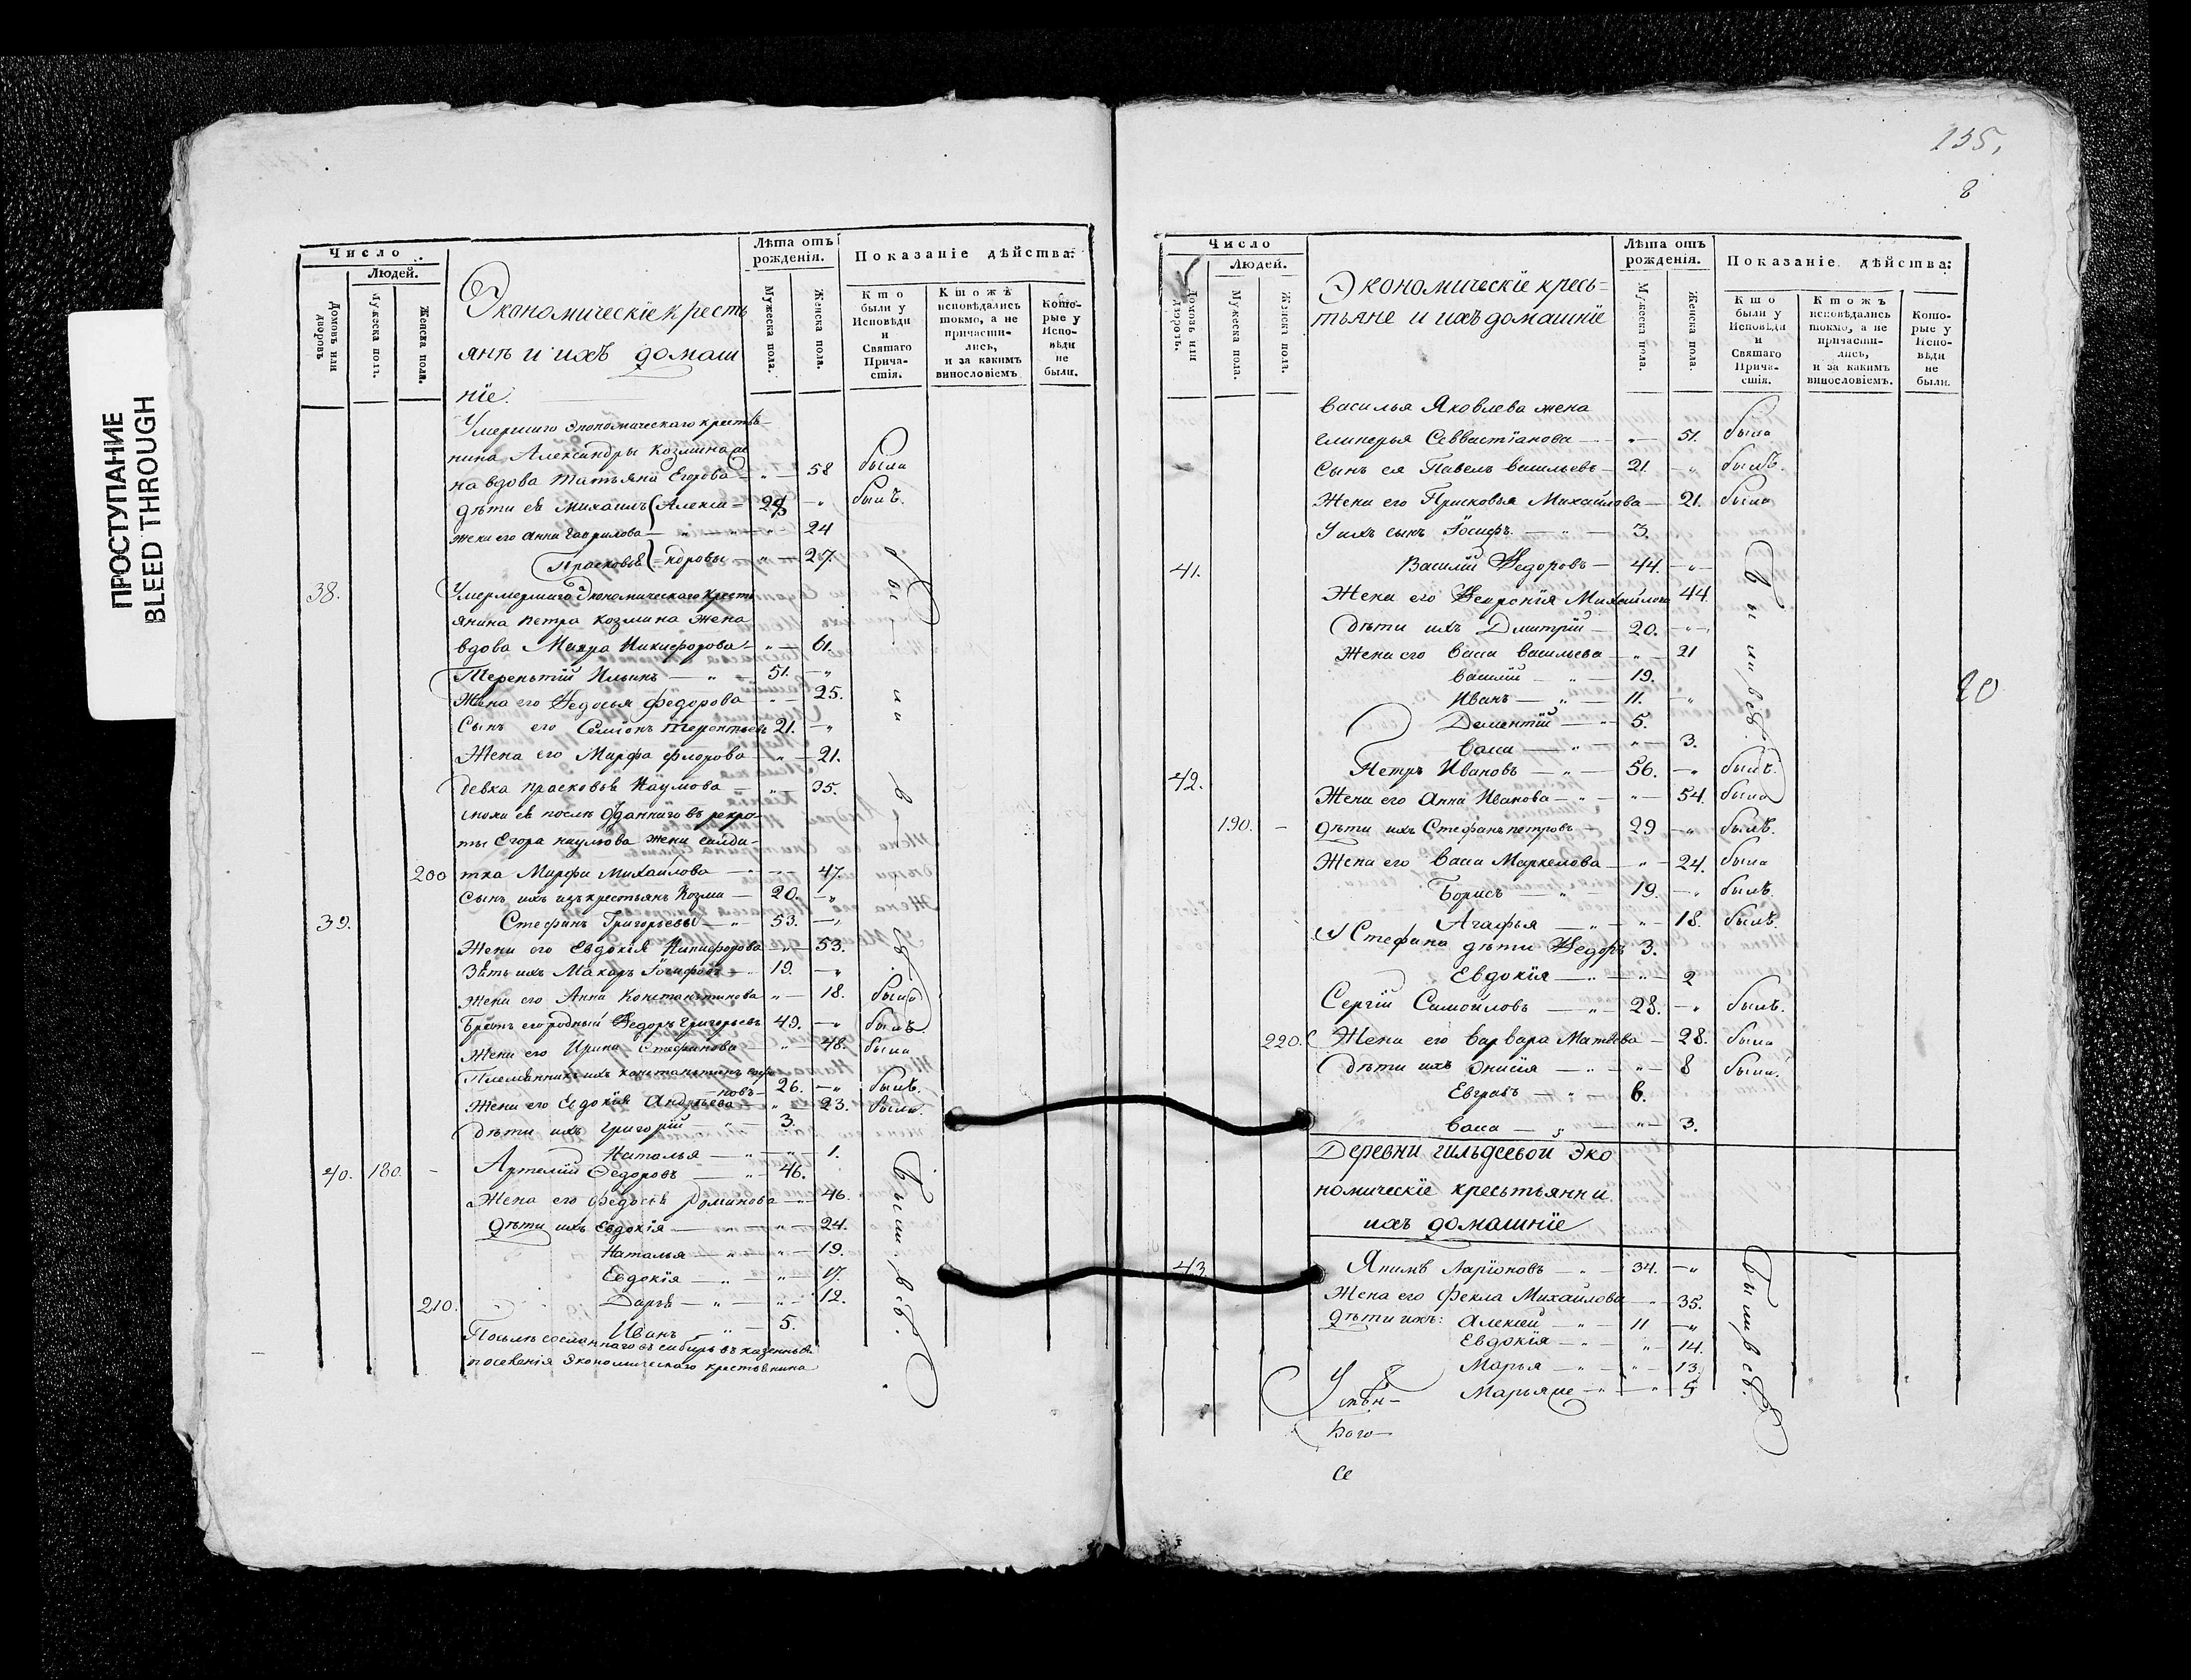 ПРОСТУПАНИЕ
BLEED THROUGH
Число
Людей.
Домовъ или дворовъ
Мужеска полъ.
Женска пола.
Экономическіе кресть
янъ и ихъ домаш
ніе.
Лѣта отъ рожденія.
Мужеска пола.
Женска пола.
Показаніе дѣйства:
Кто были у Исповѣди и Святаго Причастія.
Ктожъ исповѣдались токмо, а не причастились, и за какимъ винословіемъ
Которые у Исповѣди не были.
Умершаго Экономическаго крестья
нина Александры Козмина
на вдова Татьяна Егорова — 58 была
дѣти её Михаилъ Алекса= 28 — былъ.
жена его Анна Гаврилова — 24
Прасковья =ндровы — 27.
38. Экономическаго кресть
янина Петра Козмина жена
вдова Мавра Никифорова — 61.
Терентій Ильинъ — 51.
Жена его Федосья Федорова — 25.
Сынъ его Семіонъ Терентьевъ 21.
Жена его Марфа Флорова — 21.
девка Прасковья Наумова — 35.
сноха её послѣ отданнаго въ рекру
ты Егора Наумова жена салда
200 тка Марфа Михайлова — 47.
Сынъ ихъ изъ крестьянъ Козма — 20.
39. Стефанъ Григорьевъ — 53.
Жена его Евдокія Никифорова — 53.
Зять ихъ Макаръ Іосифовъ — 19.
Были всѣ.
Жена его Анна Константинова — 18. была
Братъ его родный Федоръ Григорьевъ 49. — былъ
Жена его Ирина Стефанова — 48. была
Племянникъ ихъ Константинъ
новъ — 26. — былъ.
Жена его Евдокія Андреева — 23. была.
Дѣти ихъ Григорій — 3.
Наталья — 1.
40. 180. Артемій Федоровъ — 46.
Жена его Федосья Романова — 46.
Дѣти ихъ Евдокія — 24.
Наталья — 19.
Евдокія — 17.
210. Дарья — 12.
Иванъ — 5.
Были всѣ.
Послѣ сосланнаго въ сибирь въ казенныя
поселенія Экономическаго крестьянина
135.
8
Число
Людей.
Домовъ или дворовъ.
Мужеска пола.
Женска пола.
Экономическіе кресь=
тьяне и ихъ домашніе
Лѣта отъ рожденія.
Мужеска пола.
Женска пола.
Показаніе дѣйства:
Кто были у Исповѣди и Святаго Причастія.
Ктожъ исповѣдались токмо, а не причастились, и за какимъ винословіемъ.
Которые у Исповѣди не были.
Василья Яковлева жена
Гликерья Севвастіанова — 51. была
Сынъ ея Павелъ Васильевъ — 21. былъ.
Жена его Прасковья Михайлова — 21. была
У ихъ сынъ Іосифъ — 3.
41. Василій Федоровъ — 44.
Жена его Февронія Михайлова 44.
Дѣти ихъ Дмитрій — 20.
Жена его Васа Васильева — 21
Василій — 19.
Иванъ — 11.
Дементій — 5.
Васа — 3.
Были всѣ.
20
42. Петръ Ивановъ — 56. былъ.
Жена его Анна Иванова — 54. была
190. — дѣти ихъ Стефанъ Петровъ — 29 былъ.
Жена его Васа Маркелова — 24. была
Борисъ — 19. былъ.
Агафья — 18. былъ.
У Стефана дѣти Федоръ 3.
Евдокія — 2
Сергій Самойловъ — 28. былъ.
220. Жена его Варвара Матвѣева — 28. была
Дѣти ихъ Онисія — 8 была.
Евграфъ — 6.
Васа — 3.
Деревни Гильдеевой Эко
номическіе кресьтьянни
ихъ домашніе
43. Якимъ Ларіоновъ — 34.
Жена его Фекла Михайлова — 35.
Дѣти ихъ: Алексій — 11
Евдокія — 14.
Марья — 13.
Марья же — 5
Были всѣ.